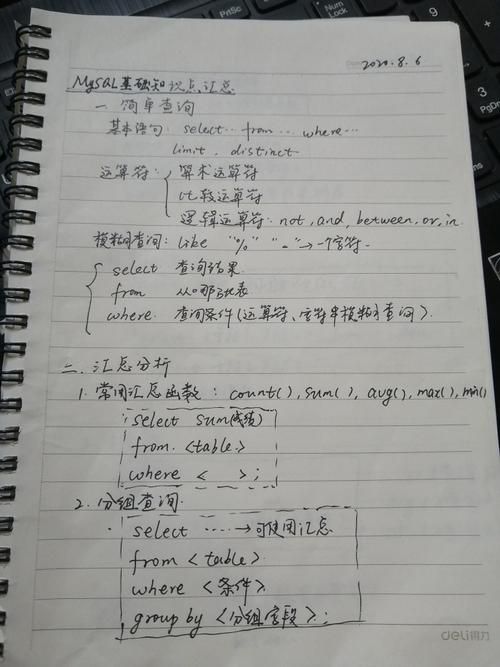 2020.8.6
MySQL基础知识点汇总
一 简单查询
基本语句: select… from … where…
limit . distinct
运算符: 算术运算符
比较运算符
逻辑运算符: not, and, between, or, in
模糊查询: like "%" "_"→一个字符
select 查询结果
from 从哪张表
where. 查询条件(运算符、字符串模糊查询).
二. 汇总分析
1. 常用汇总函数: count(), sum(), avg(), max(), min()
select sum(成绩)
from <table>
where < >;
2. 分组查询
select ……→可使用汇总
from <table>
where <条件>
group by <分组字段>;
deli得力
PrtSc
Num
Lock
PgDn